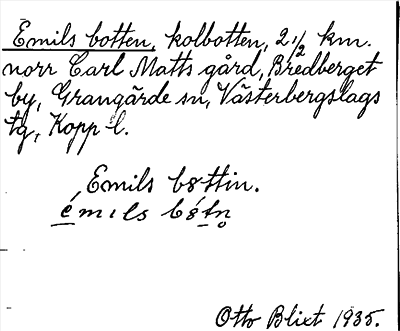 Emils botten, kolbotten, 2 1/2 km.
norr Carl Matts gård, Bredberget
by, Grangärde sn, Västerbergslags
tg, Kopp l.
Emils bottin.
émıls bótn̥
Otto Blixt 1935.